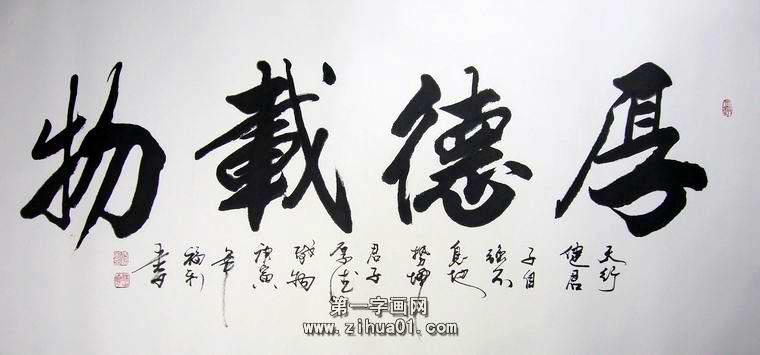 厚德載物
天行
健君
子自
強不
息地
勢坤
君子
厚德
載物
庚寅
年
福利
書
第一字画网
www.zihua01.com